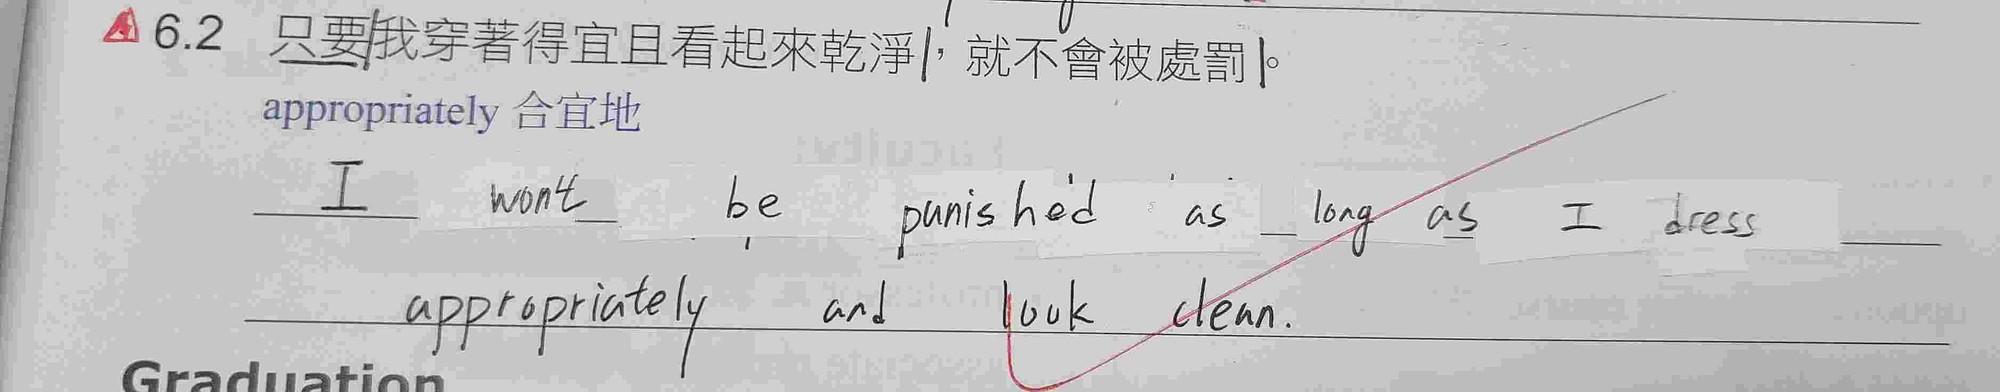 6.2 只要我穿著得宜且看起來乾淨，就不會被處罰。
appropriately 合宜地
I won't be punished as long as I dress
appropriately and look clean.
Graduation